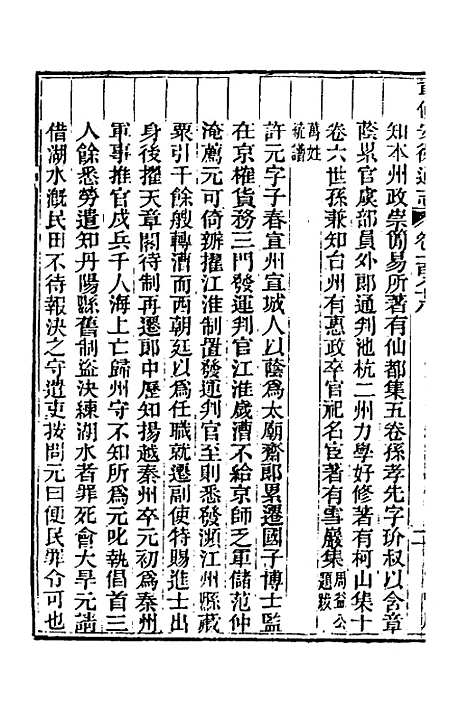 重修安徽通志 卷一百九六
知本州政崇簡易所著有仙都集五卷孫孝先字玠叔以舍章
蔭累官虞部員外郎通判池杭二州力學好修著有柯山集十
卷六世孫兼知台州有惠政卒官祀名宦著有雪巖集周益公題跋
萬姓統譜
許元字子春宣州宣城人以蔭為太廟齋郎累遷國子博士監
在京榷貨務三門發運判官江淮歲漕不給京師乏軍儲范仲
淹薦元可倚辦擢江淮制置發運判官至則悉發瀕江州縣藏
粟引千餘艘轉漕而西朝廷以為任職就遷副使特賜進士出
身後擢天章閣待制再遷郎中歷知揚越秦州卒元初為泰州
軍事推官戍兵千人海上亡歸州守不知所為元叱執倡首三
人餘悉勞遣知丹陽縣舊制盜決練湖水者罪死會大旱元請
借湖水溉民田不待報決之守遣吏按問元曰便民罪令可也